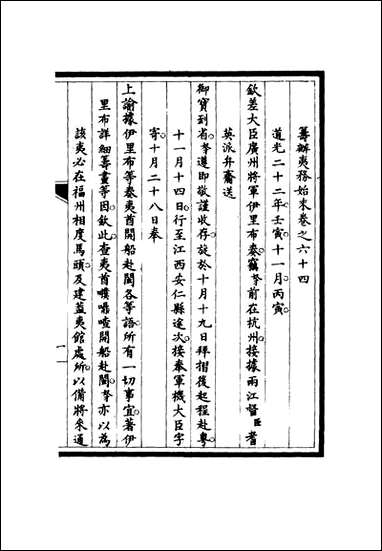 籌辦夷務始末卷之六十四
道光二十二年壬寅十一月丙寅
欽差大臣廣州將軍伊里布奏竊奴才前在杭州接據兩江督臣耆
英派弁齎送
御寶到省奴才遵即敬謹收存旋於十月十九日拜摺後起程赴粵
十一月十四日行至江西安仁縣途次接奉軍機大臣字
寄十月二十八日奉
上諭據伊里布等奏夷酋開船赴閩各等語所有一切事宜著伊
里布詳細籌畫等因欽此查夷酋㗆㗶喳開船赴閩奴才亦以為
該夷必在福州相度馬頭及建蓋夷館處所以備將來通
一